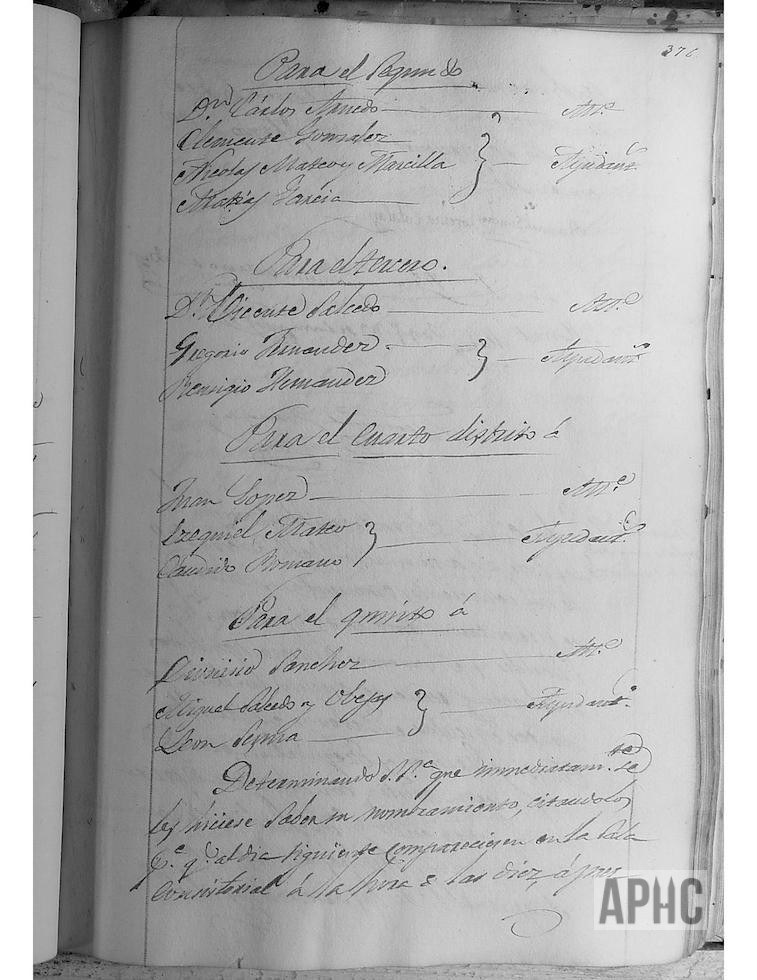 376
Para el segundo
Dn Carlos Arnedo Ale
Clemente Gonzalez
Nicolas Mateo y Marcilla Ayudants
Matias Garcia
Para el tercero.
Dn Vicente Salcedo Ale
Gregorio Hernandez Ayudants
Remigio Hernandez
Para el cuarto distrito á
Juan Lopez Ale
Ezequiel Mateo Ayudants
Claudio Romano
Para el quinto á
Dionisio Sanchez Ale
Miguel Salcedo y Obejas Ayudants
Leon
Determinando S.Sa que immediatamte se
les hiciese saber su nombramiento, citandolos
pa qe al dia siguiente compareciesen en la Sala
Consitorial á la hora de las diez, á pres
APHC